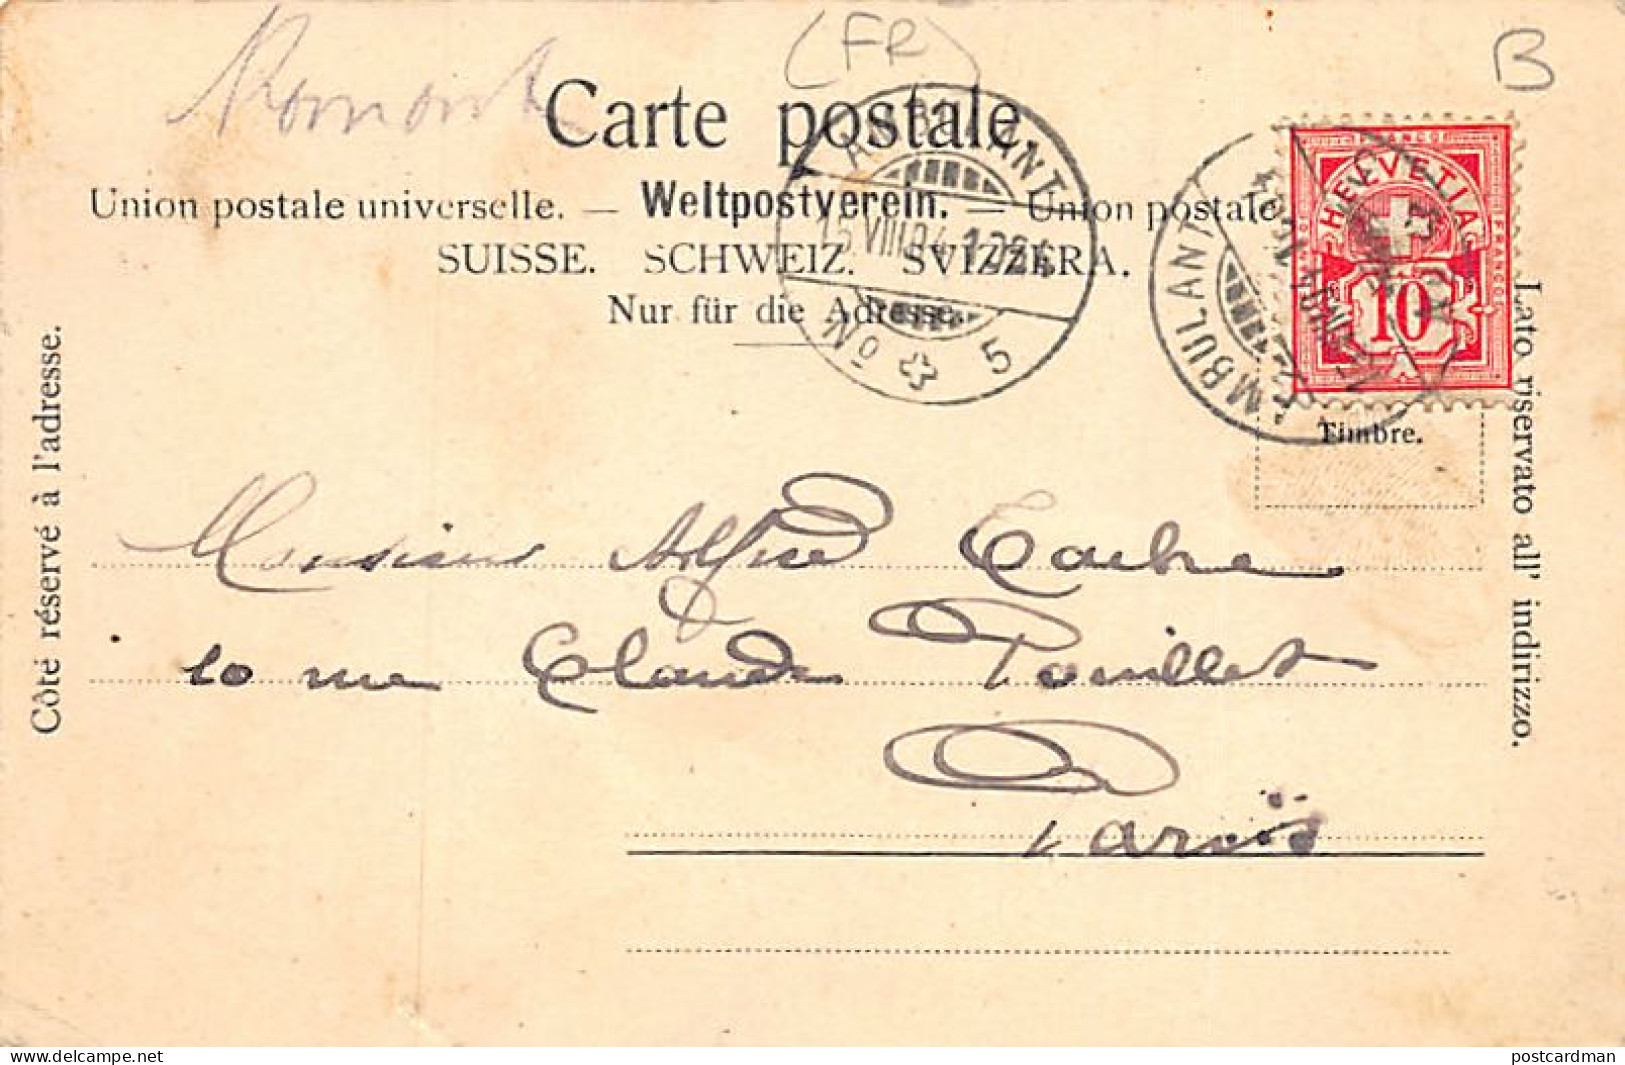 (FR)
B
Romont
Carte postale
Union postale universelle. — Weltpostverein. — Union postale
SUISSE. SCHWEIZ. SVIZZERA.
Nur für die Adresse.
AMBULANT
15.VIII.04
No 5
AMBULANT
FRANCO
HELVETIA
FRANCO
10
Timbre.
Côté réservé à l'adresse.
Lato riservato all' indirizzo.
Monsieur Alfred
10 rue Claude Pouillet
Paris
delcampe.net
postcardman